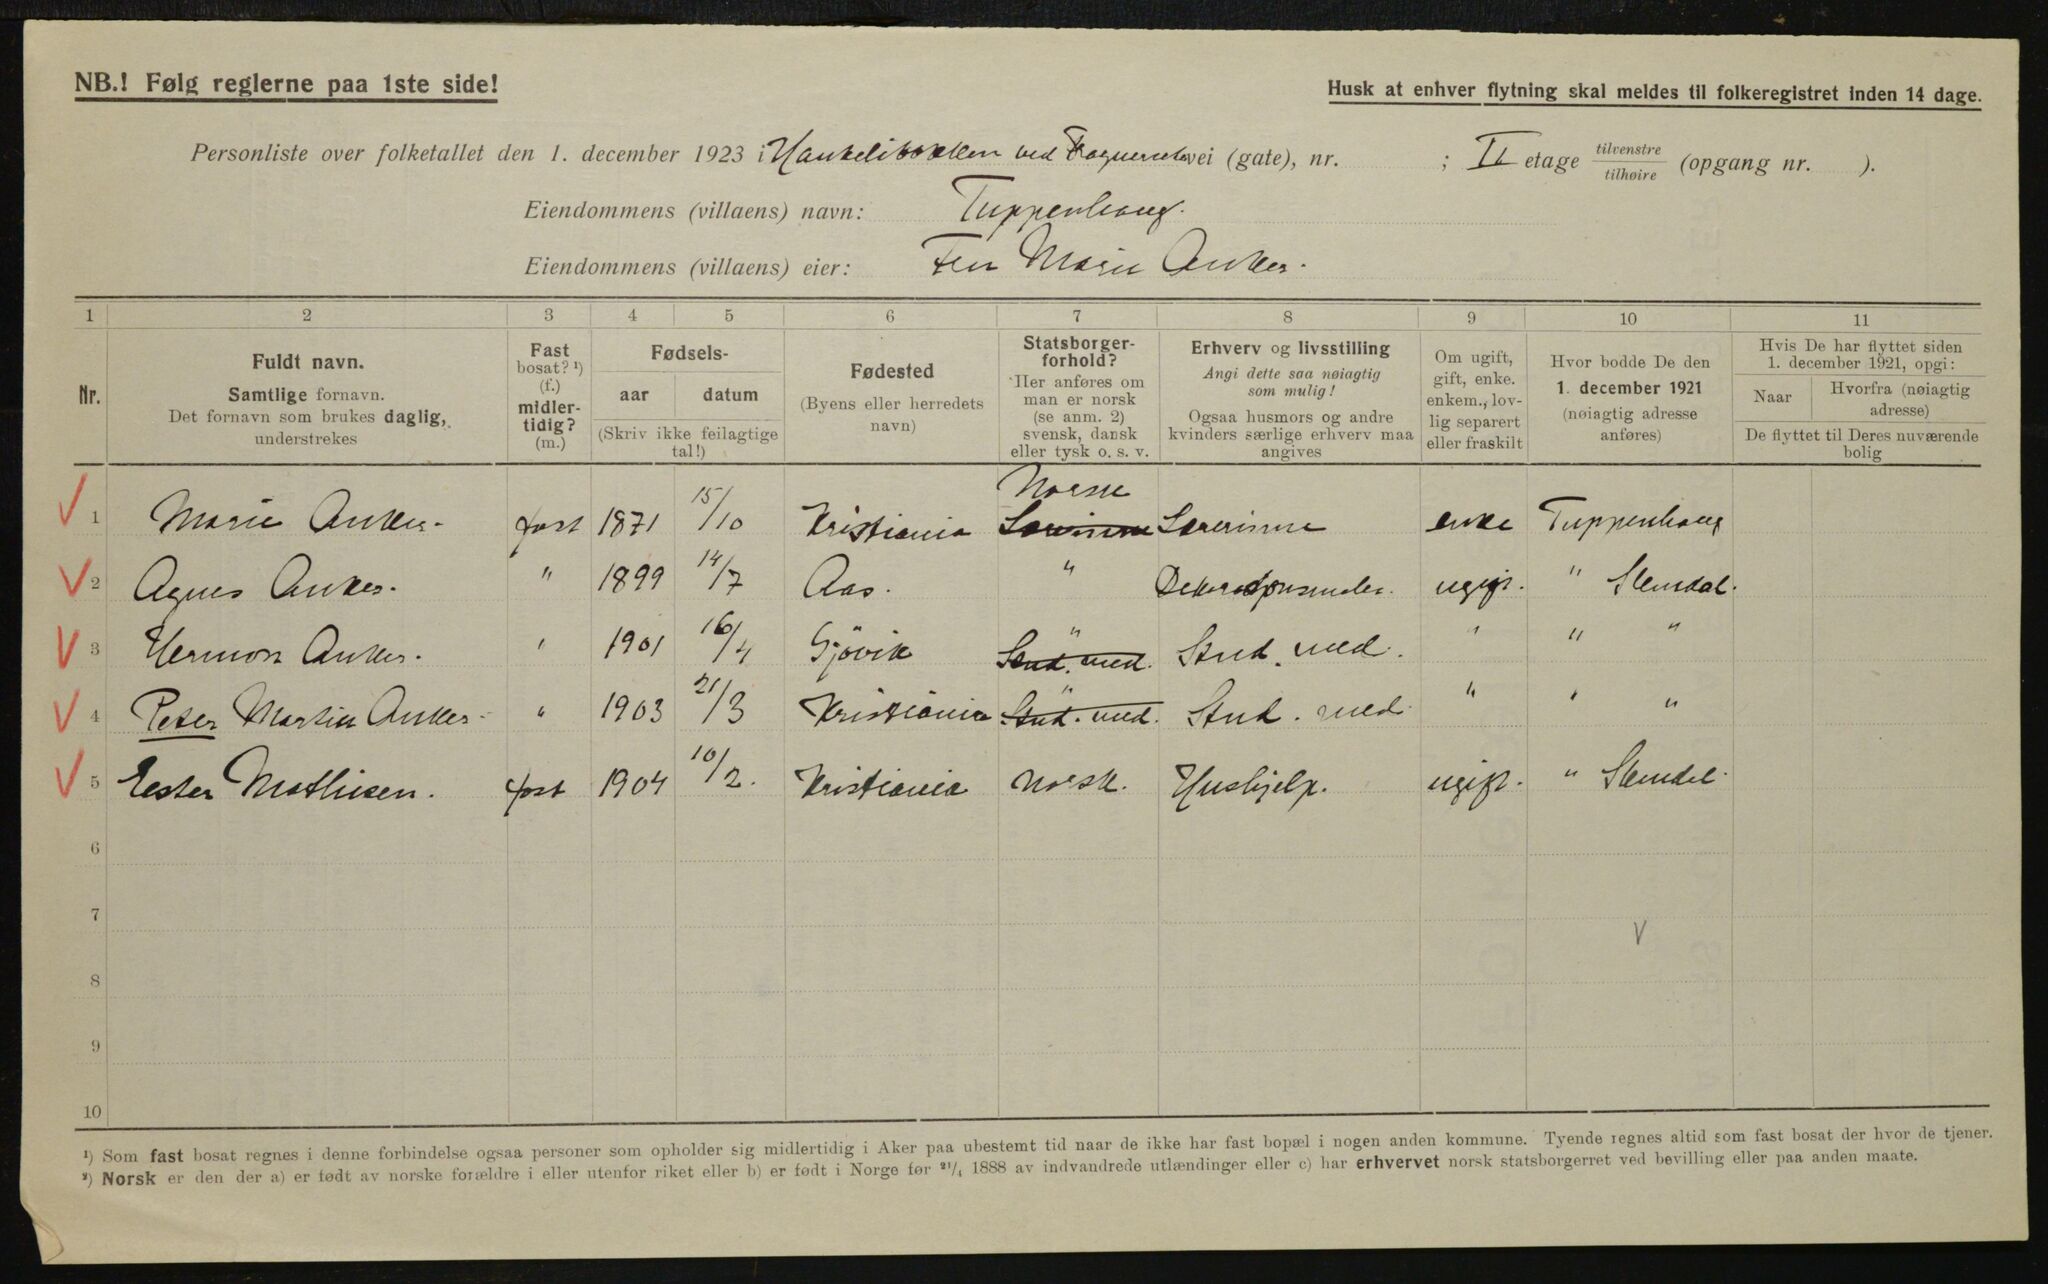 NB.! Følg reglerne paa 1ste side!
Husk at enhver flytning skal meldes til folkeregistret inden 14 dage.
Personliste over folketallet den 1. december 1923 i ved vei (gate), nr. ; II etage tilvenstre tilhøire (opgang nr. ).
Eiendommens (villaens) navn: Tuppenhaug.
Eiendommens (villaens) eier: Fru Marie Anker.
1 2 3 4 5 6 7 8 9 10 11
Nr.
Fuldt navn.
Samtlige fornavn.
Det fornavn som brukes daglig,
understrekes
Fast
bosat? ¹)
(f.)
midler-
tidig?
(m.)
Fødsels-
aar datum
(Skriv ikke feilagtige
tal!)
Fødested
(Byens eller herredets
navn)
Statsborger-
forhold?
Her anføres om
man er norsk
(se anm. 2)
svensk, dansk
eller tysk o. s. v.
Erhverv og livsstilling
Angi dette saa nøiagtig
som mulig!
Ogsaa husmors og andre
kvinders særlige erhverv maa
angives
Om ugift,
gift, enke.
enkem., lov-
lig separert
eller fraskilt
Hvor bodde De den
1. december 1921
(nøiagtig adresse
anføres)
Hvis De har flyttet siden
1. december 1921, opgi:
Naar Hvorfra (nøiagtig
adresse)
De flyttet til Deres nuværende
bolig
1 Marie Anker. fast 1871 15/10 Kristiania Norsk Lærerinne Lærerinne enke Tuppenhaug
2 Agnes Anker. " 1899 14/7 Aas. " ugift. " Slemdal.
3 Herman Anker. " 1901 16/4 Gjövik " Stud. med. Stud. med. " " "
4 Peter Martin Anker " 1903 21/3 Kristiania " Stud. med. Stud. med. " " "
5 Ester Mathisen. fast 1904 10/2. Kristiania Norsk. Hushjelp. ugift. " Slemdal.
6
7
8
9
10
¹) Som fast bosat regnes i denne forbindelse ogsaa personer som opholder sig midlertidig i Aker paa ubestemt tid naar de ikke har fast bopæl i nogen anden kommune. Tyende regnes altid som fast bosat der hvor de tjener.
²) Norsk er den der a) er født av norske forældre i eller utenfor riket eller b) er født i Norge før 21/4 1888 av indvandrede utlændinger eller c) har erhvervet norsk statsborgerret ved bevilling eller paa anden maate.